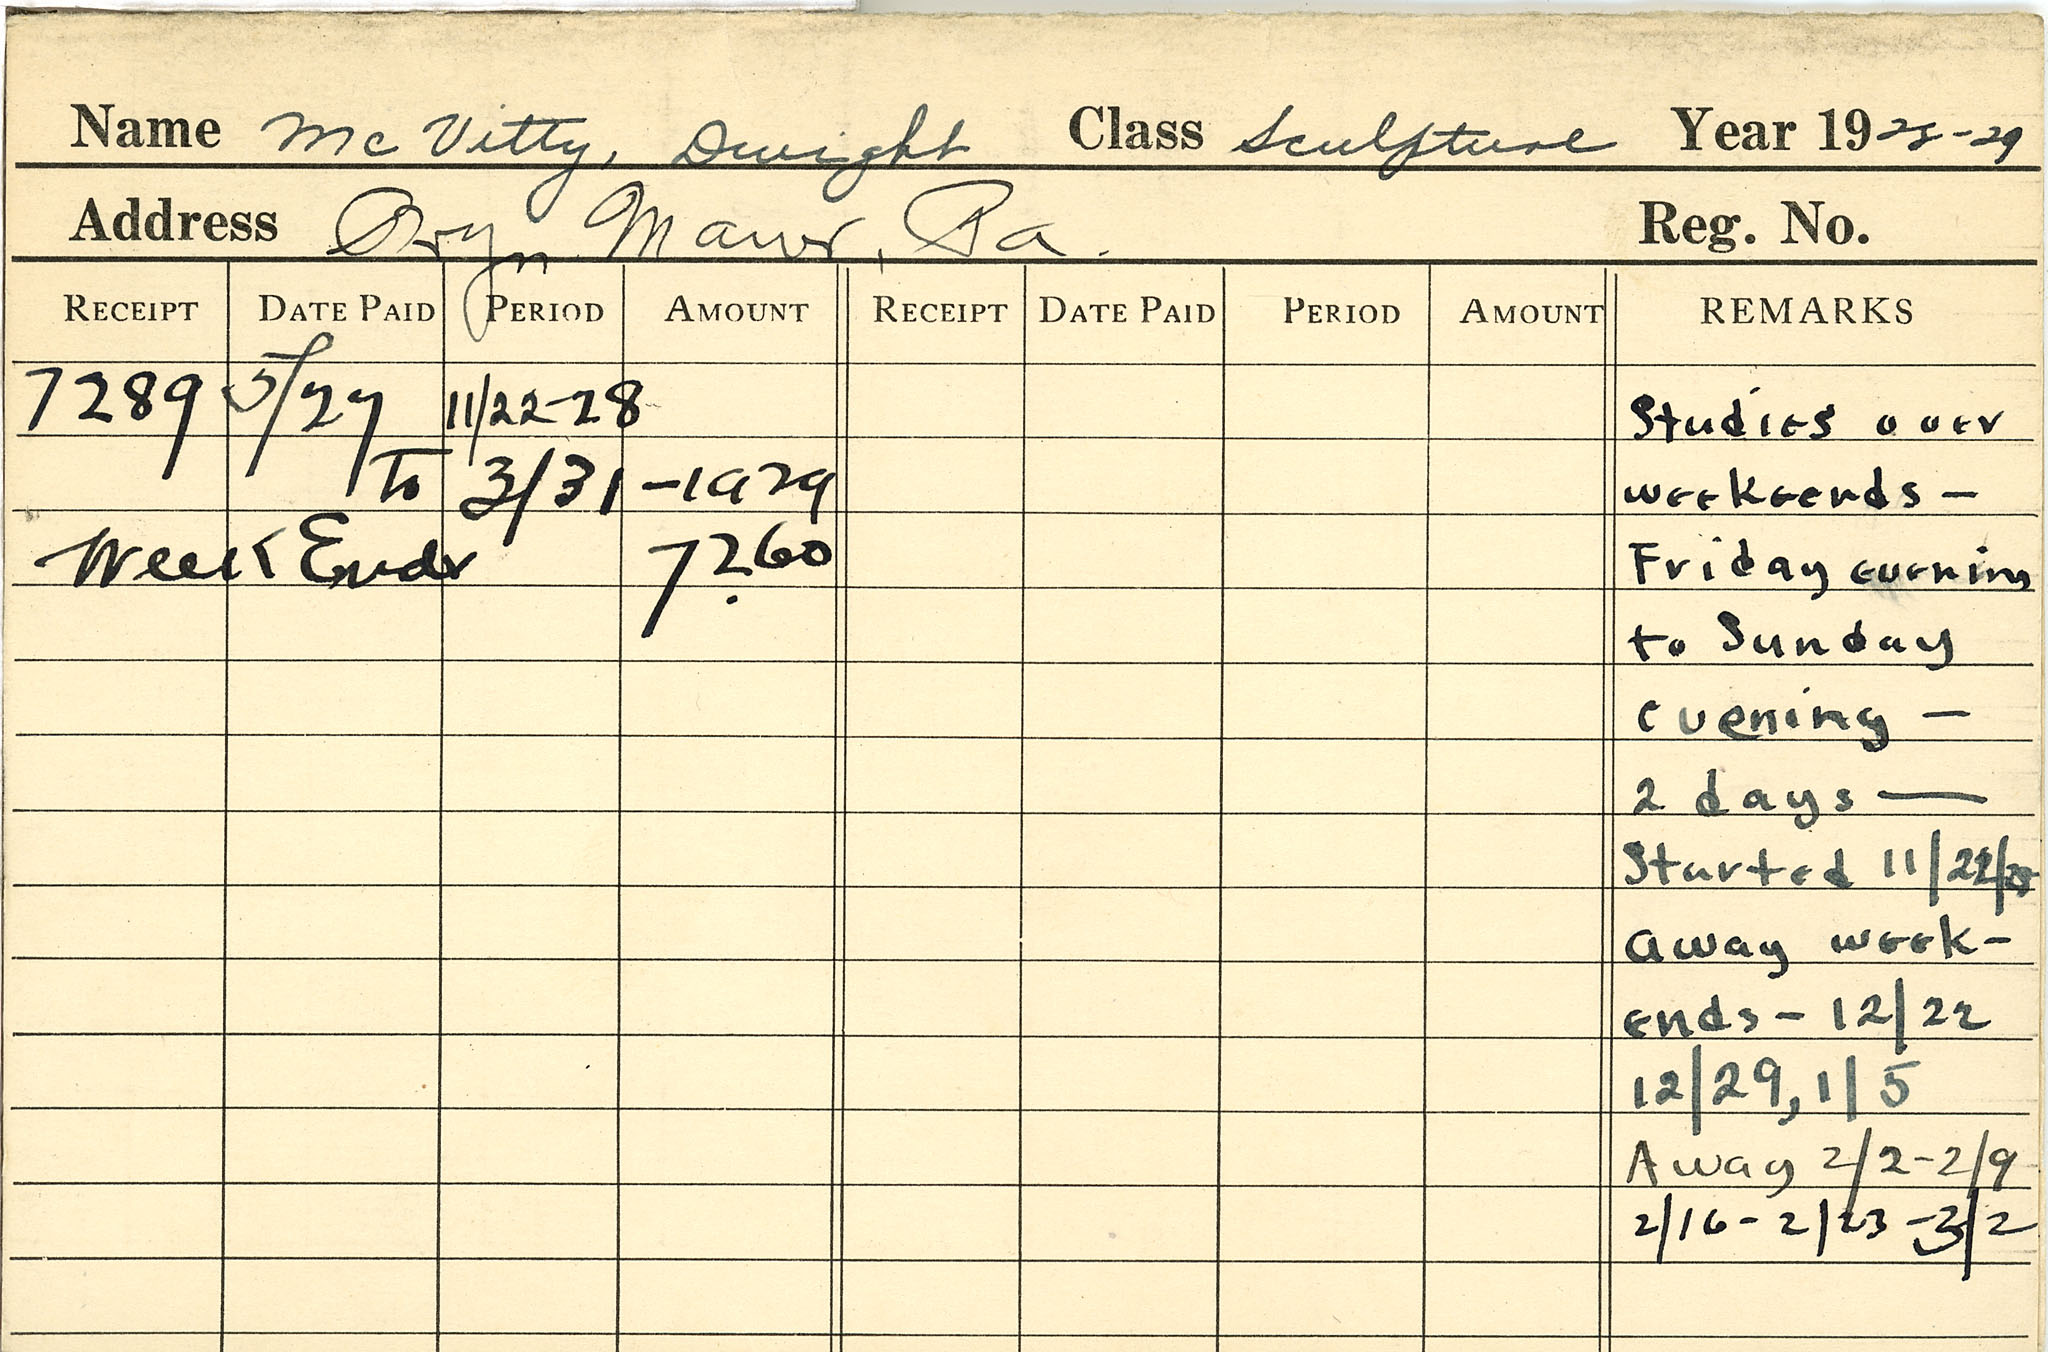 Name Mc Vitty, Dwight Class Sculpture Year 1928-29
Address Bryn Mawr, Pa. Reg. No.
RECEIPT DATE PAID PERIOD AMOUNT RECEIPT DATE PAID PERIOD AMOUNT REMARKS
7289 5/27 11/22-28 Studies over
To 3/31-1929 weekeends -
Week Ends 72.60 Friday evening
to Sunday
evening -
2 days —
Started 11/22/28
away week-
ends - 12/22
12/29, 1/5
Away 2/2-2/9
2/16-2/23-3/2